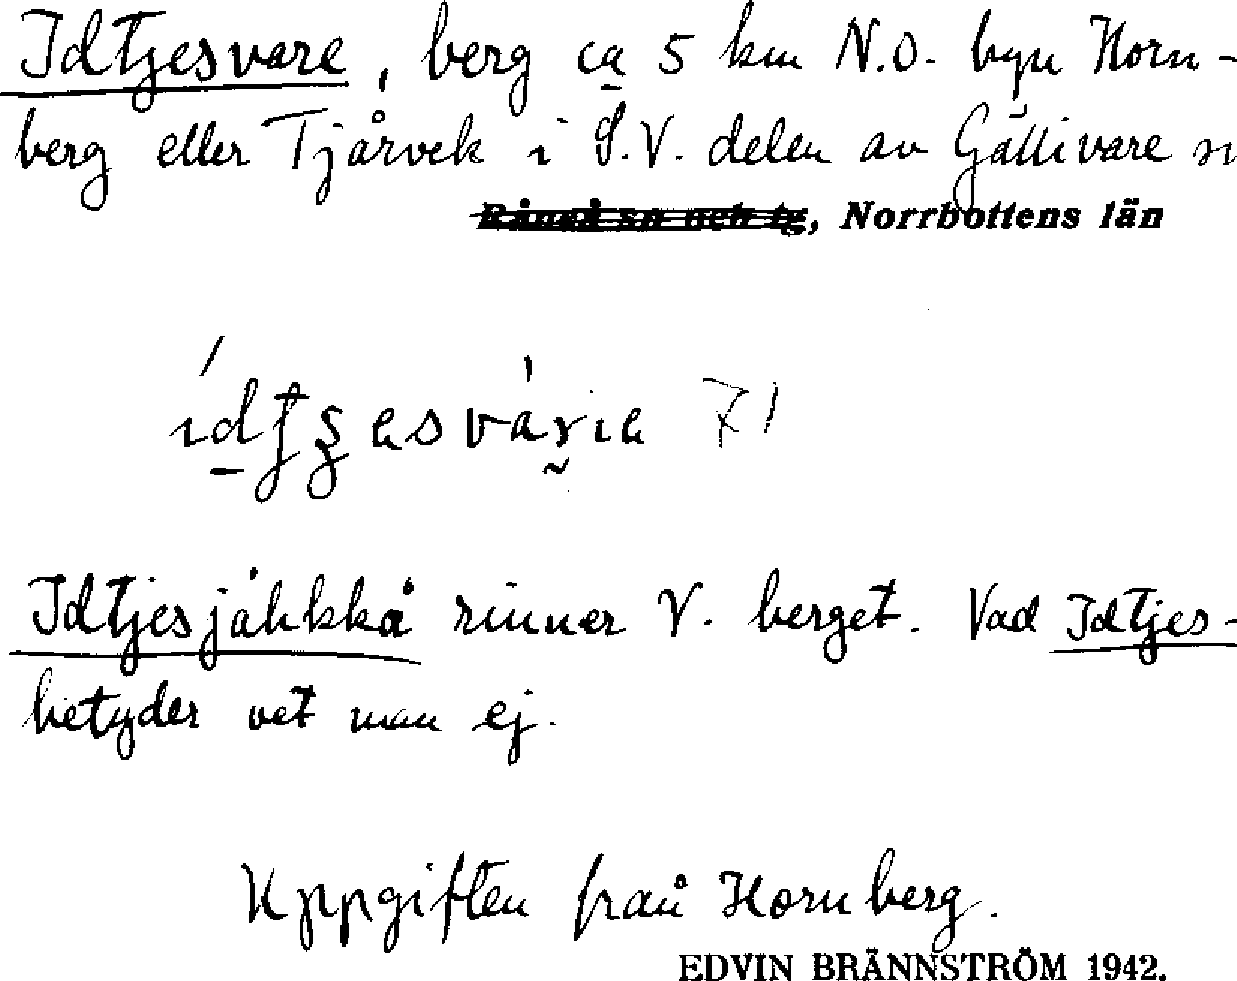 Idtjesvare, berg ca 5 km N.O. byn Horn-
berg eller Tjårvek i S.V. delen av Gällivare sn
Råneå sn och tg, Norrbottens län
71
Idtjesjåhkkå rinner V. berget. Vad Idtjes-
betyder vet man ej.
Uppgiften från Hornberg.
EDVIN BRÄNNSTRÖM 1942.